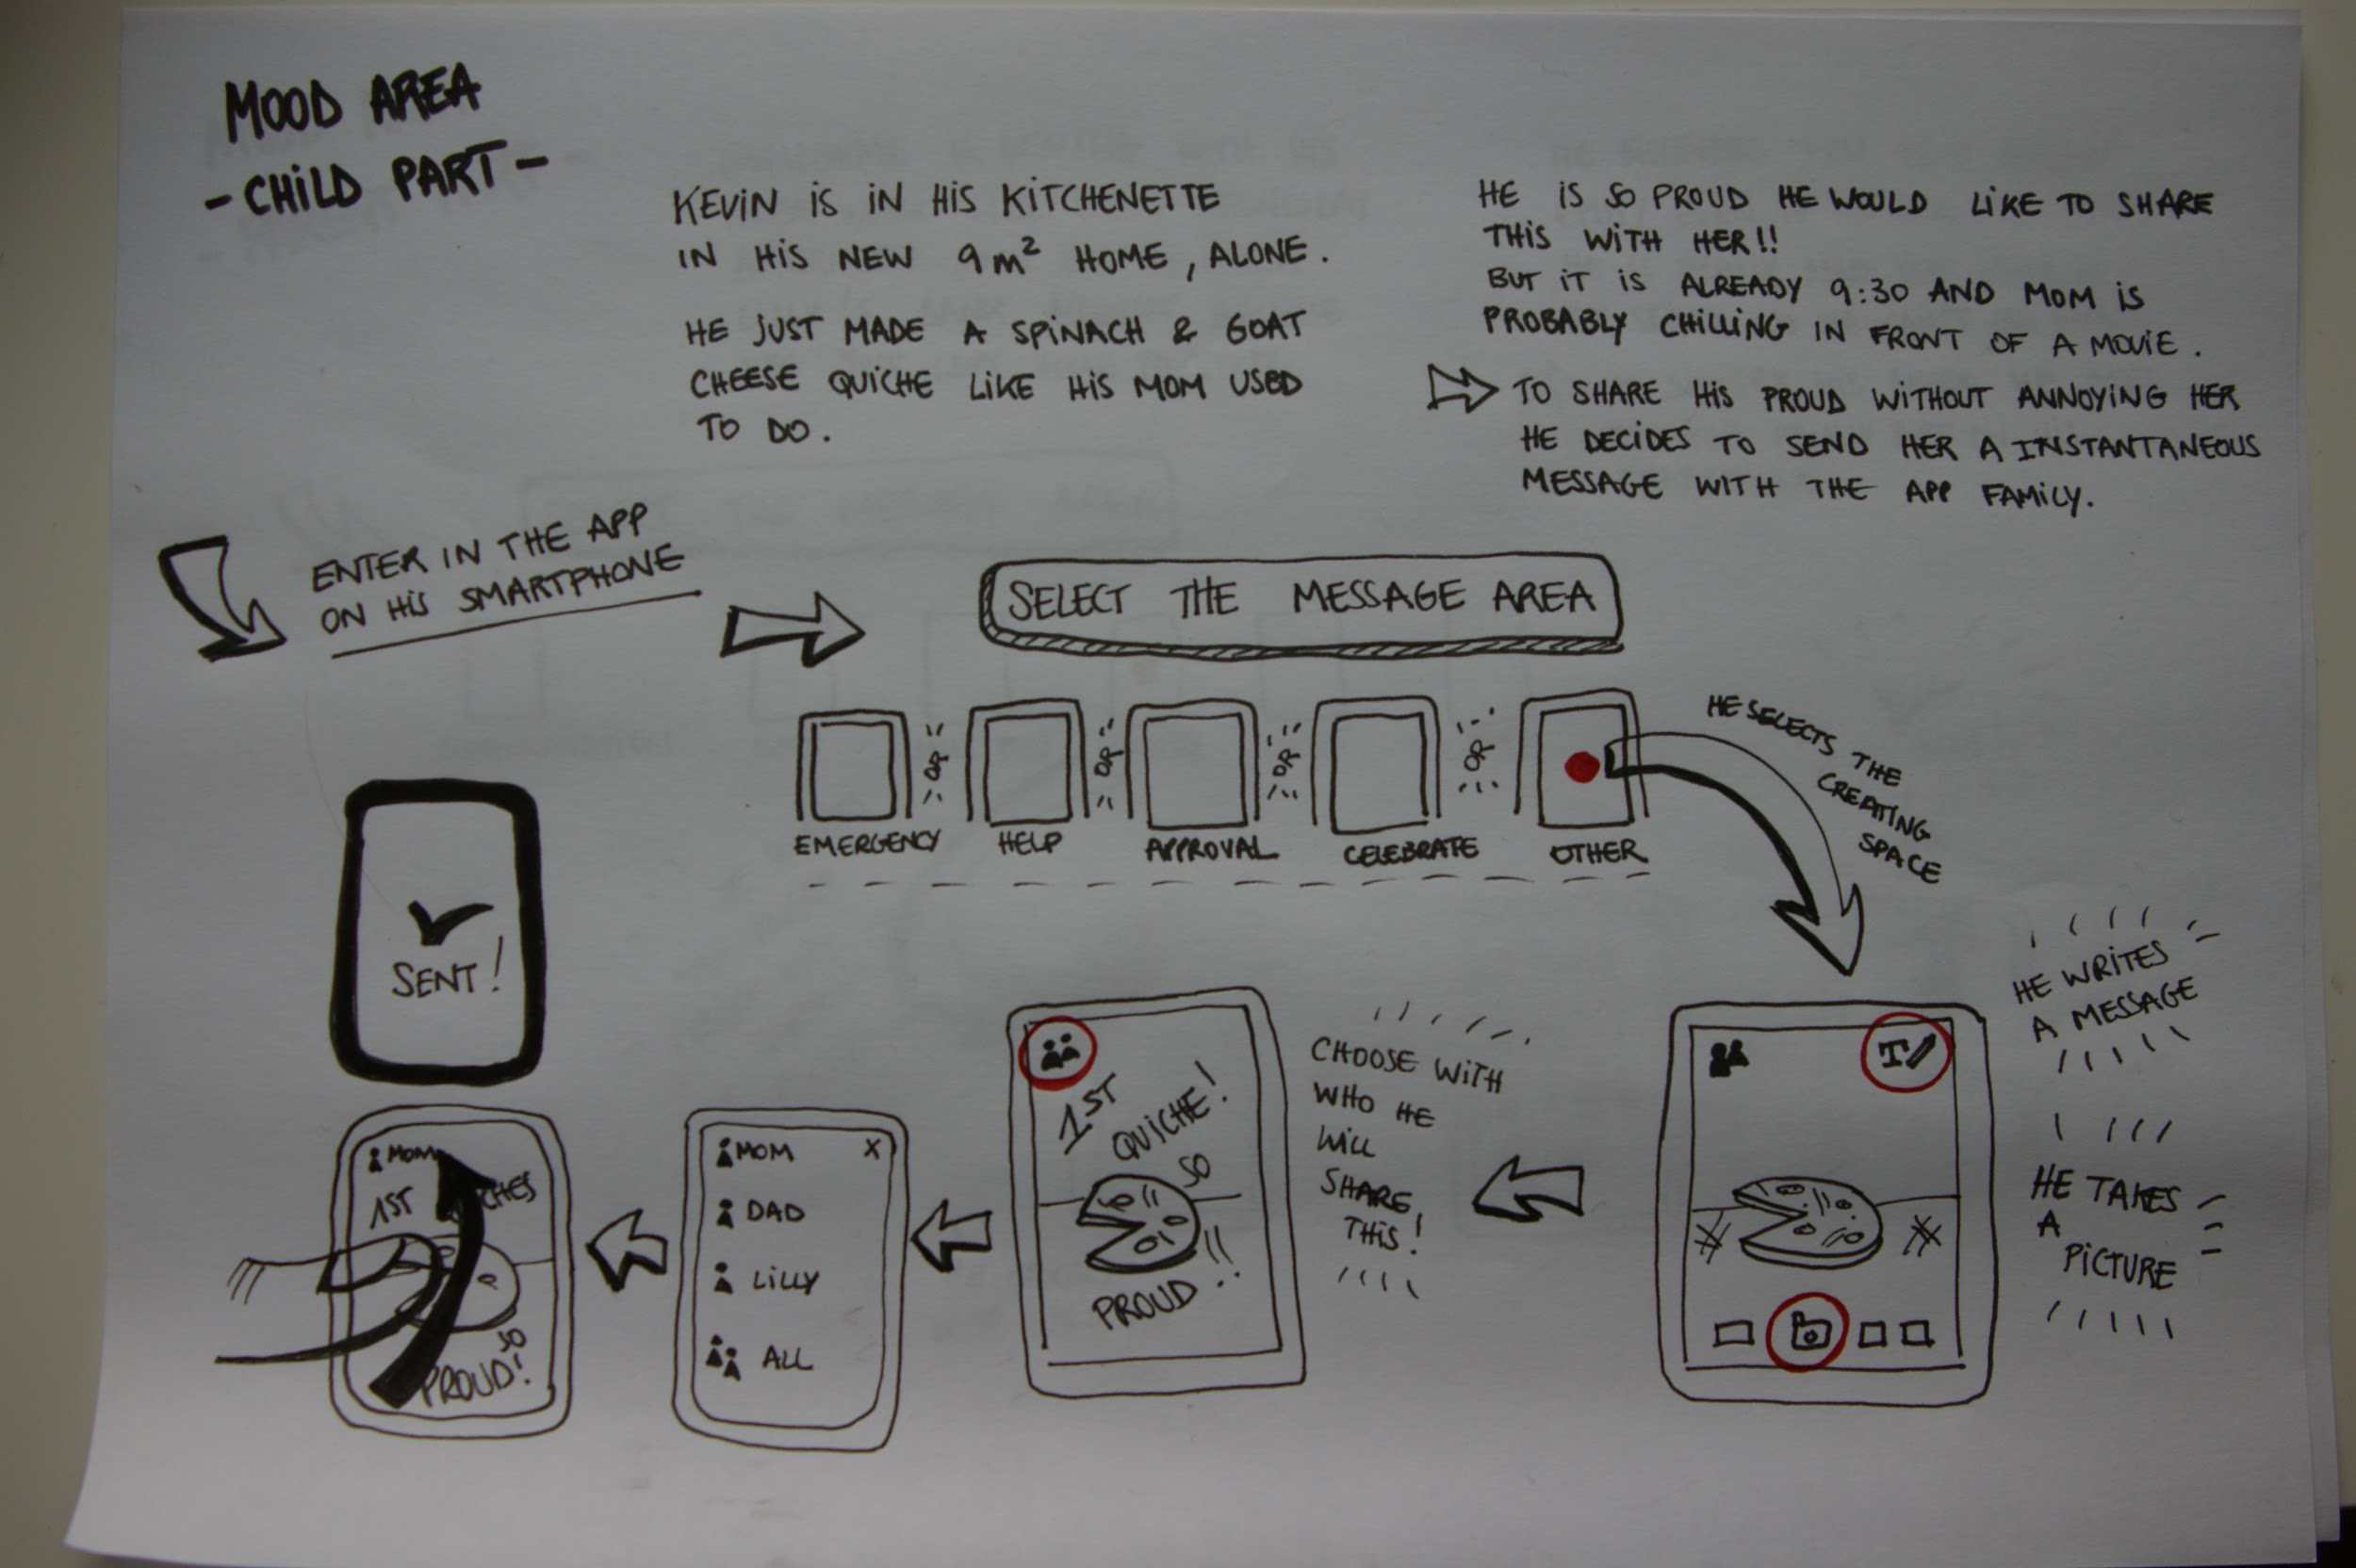 MOOD AREA
- CHILD PART -
KEVIN IS IN HIS KITCHENETTE
IN HIS NEW 9m² HOME, ALONE.
HE JUST MADE A SPINACH & GOAT
CHEESE QUICHE LIKE HIS MOM USED
TO DO.
HE IS SO PROUD HE WOULD LIKE TO SHARE
THIS WITH HER!!
BUT IT IS ALREADY 9:30 AND MOM IS
PROBABLY CHILLING IN FRONT OF A MOVIE.
TO SHARE HIS PROUD WITHOUT ANNOYING HER
HE DECIDES TO SEND HER A INSTANTANEOUS
MESSAGE WITH THE APP FAMILY.
ENTER IN THE APP
ON HIS SMARTPHONE
SELECT THE MESSAGE AREA
OR
OR
OR
OR
EMERGENCY
HELP
APPROVAL
CELEBRATE
OTHER
HE SELECTS THE
CREATING
SPACE
HE WRITES
A MESSAGE
T
HE TAKES
A
PICTURE
CHOOSE WITH
WHO HE
WILL
SHARE
THIS!
1ST
QUICHE!
SO
PROUD!!
MOM X
DAD
LILLY
ALL
MOM
1ST
SO
PROUD!
SENT!